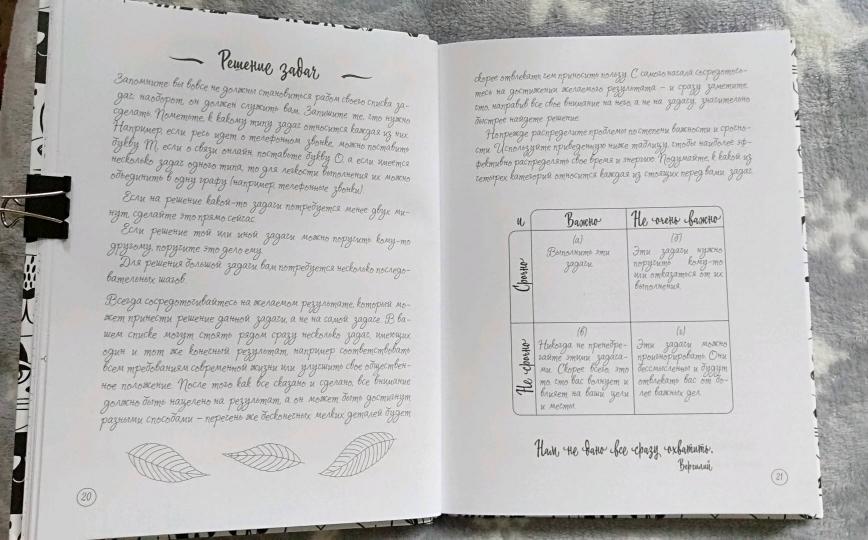 Решение задач
Запомните: вы вовсе не должны становиться рабом своего списка за-
дач, наоборот, он должен служить вам. Запишите те, что нужно
сделать. Пометьте, к какому типу задач относится каждая из них.
Например, если речь идет о телефонном звонке, можно поставить
букву Т, если о связи онлайн, поставьте букву О, а если имеется
несколько задач одного типа, то для легкости выполнения их можно
объединить в одну графу (например, телефонные звонки).
Если на решение какой-то задачи потребуется менее двух ми-
нут, сделайте это прямо сейчас.
Если решение той или иной задачи можно поручить кому-то
другому, поручите это дело ему.
Для решения большой задачи вам потребуется несколько последо-
вательных шагов.
Всегда сосредотачивайтесь на желаемом результате, который мо-
жет принести решение данной задачи, а не на самой задаче. В ва-
шем списке могут стоять рядом сразу несколько задач, имеющих
один и тот же конечный результат, например соответствовать
всем требованиям современной жизни или улучшить свое обществен-
ное положение. После того как все сказано и сделано, все внимание
должно быть нацелено на результат, а он может быть достигнут
разными способами – перечень же бесконечных мелких деталей будет
20
скорее отвлекать, чем приносить пользу. С самого начала сосредоточь-
тесь на достижении желаемого результата – и сразу заметите,
что, направив все свое внимание на него, а не на задачу, значительно
быстрее найдете решение.
Но прежде распределите проблемы по степени важности и срочно-
сти. Используйте приведенную ниже таблицу, чтобы наиболее эф-
фективно распределять свое время и энергию. Подумайте, к какой из
четырех категорий относится каждая из стоящих перед вами задач.
и
Важно
Не очень важно
Срочно
(а)
Выполнить эти
задачи.
(б)
Эти задачи нужно
поручить кому-то
или отказаться от их
выполнения.
Не срочно
(в)
Никогда не пренебре-
гайте этими задача-
ми. Скорее всего, это
то, что вас волнует и
влияет на ваши цели
и мечты.
(г)
Эти задачи можно
проигнорировать. Они
бессмысленны и будут
отвлекать вас от бо-
лее важных дел.
Нам не дано все сразу охватить.
Вергилий
21